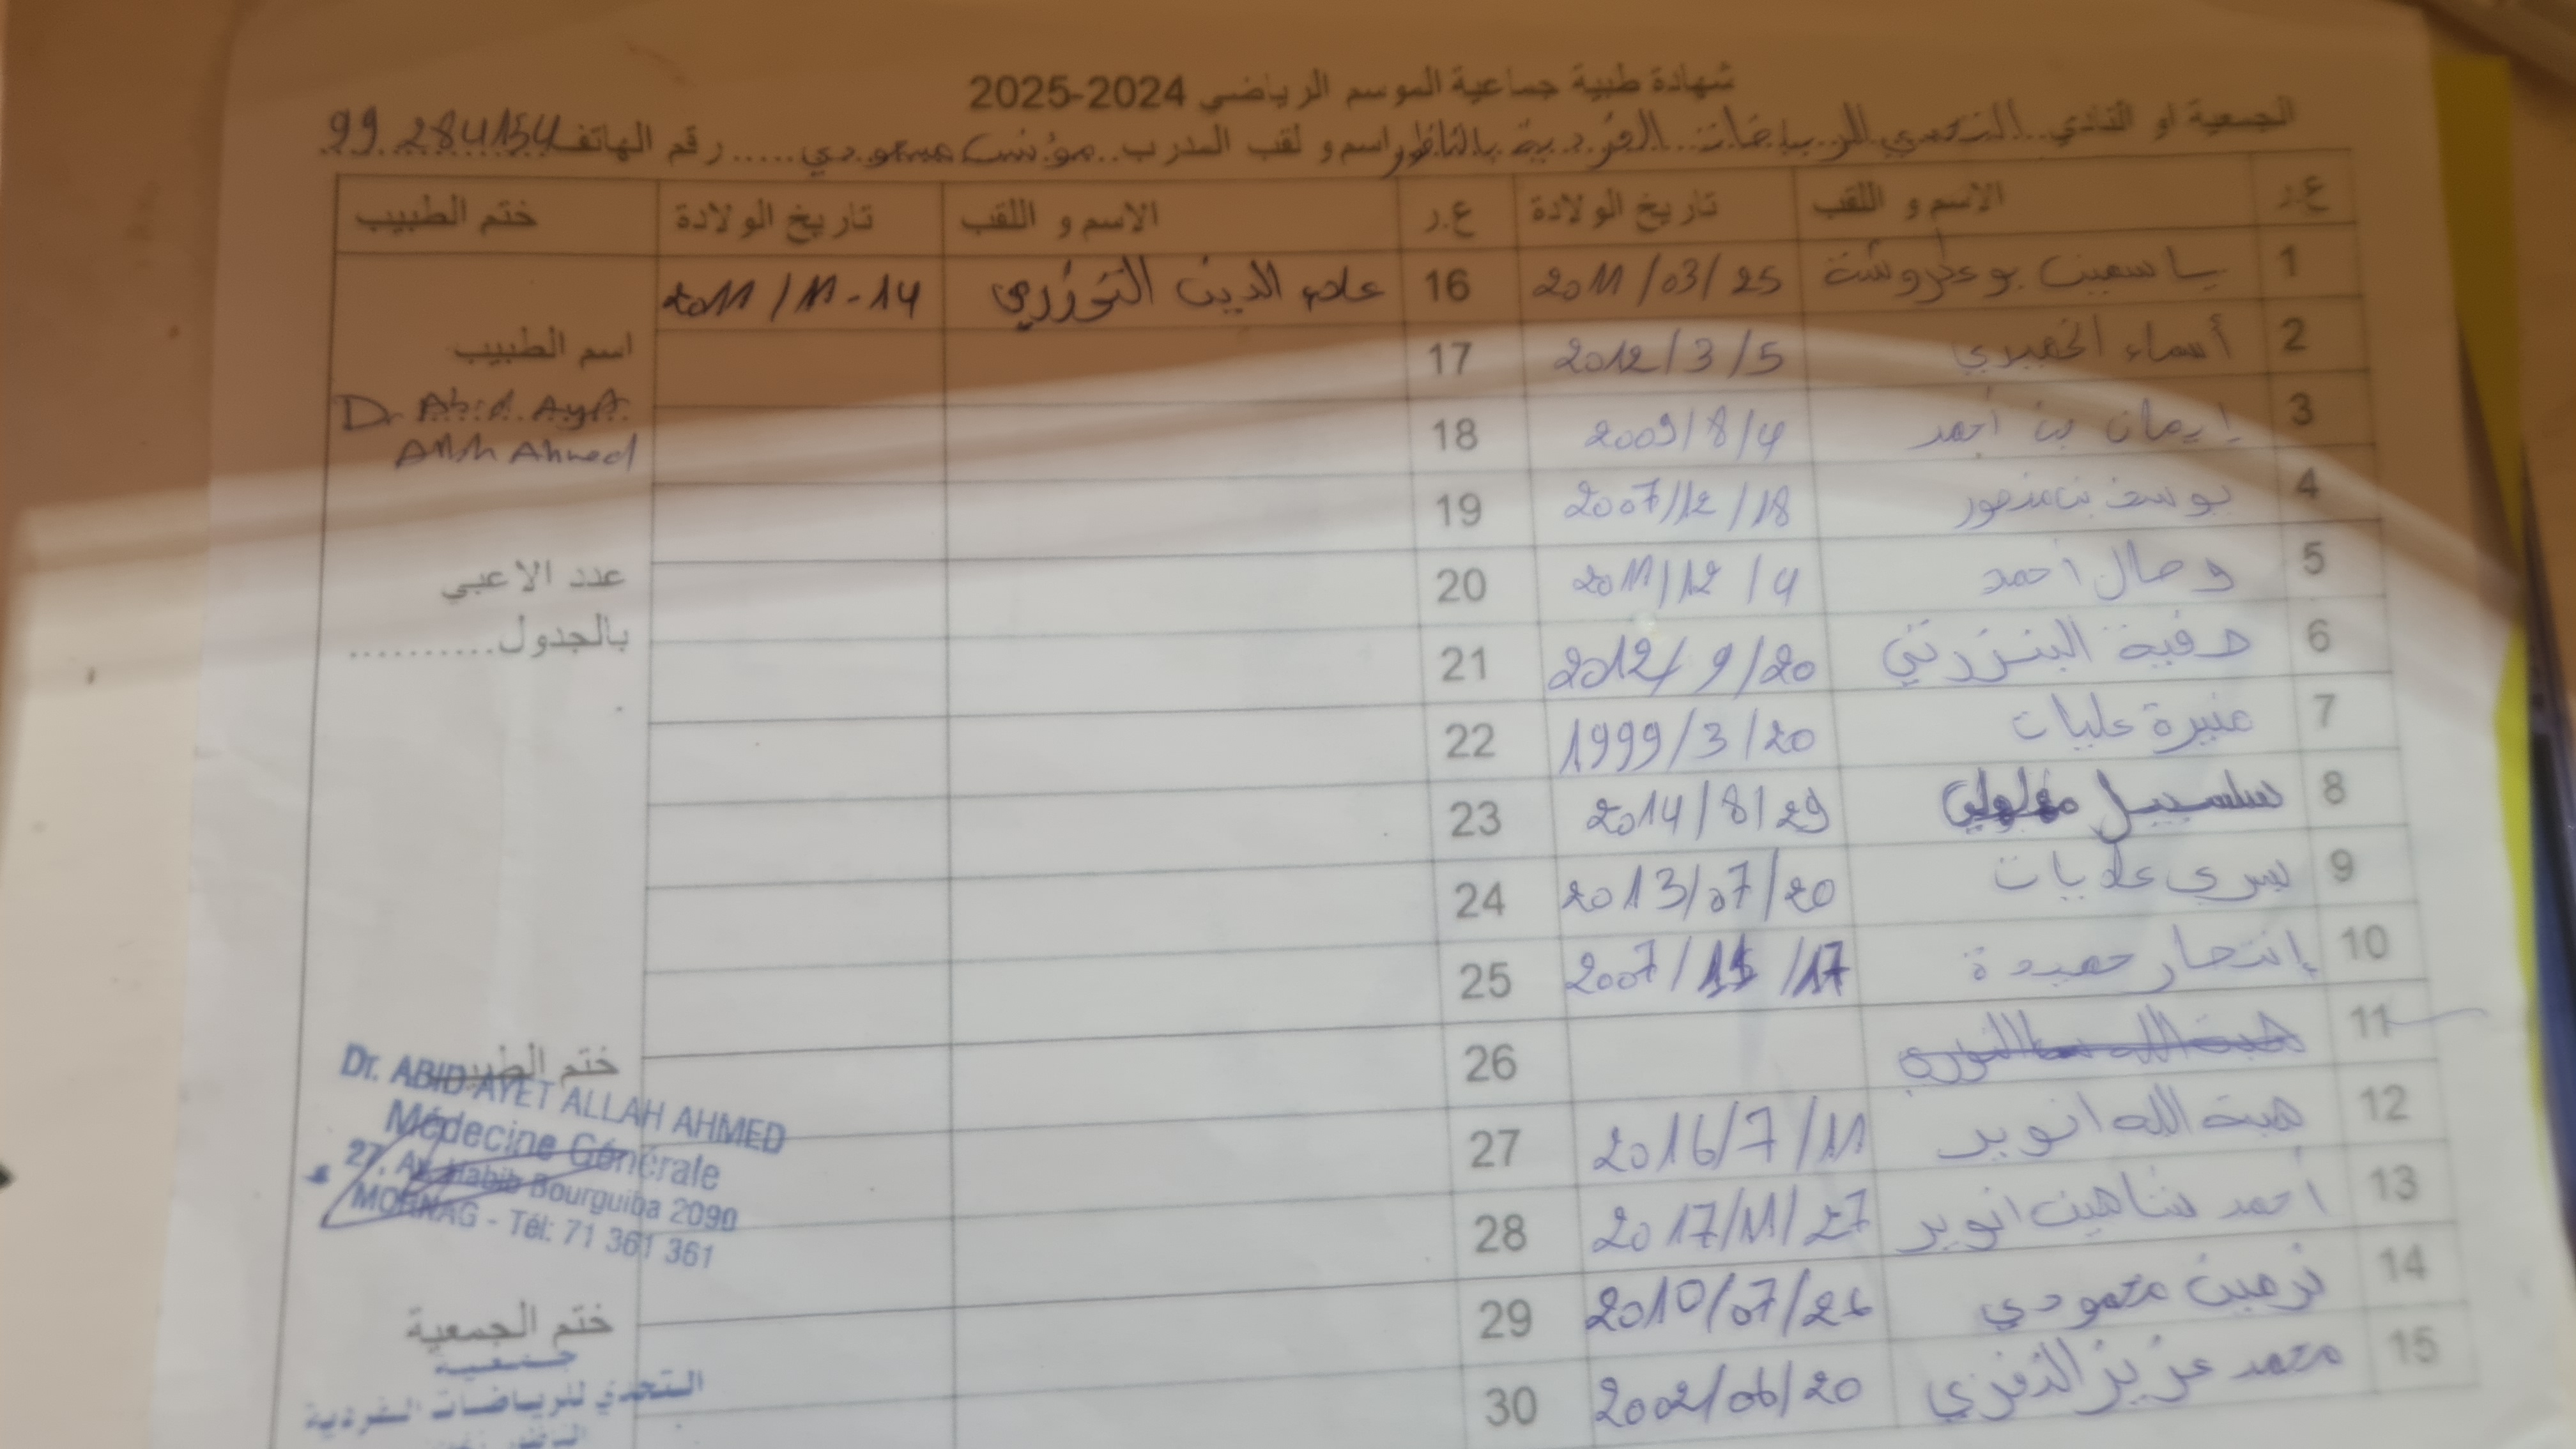 شهادة طبية جماعية الموسم الرياضي 2024-2025
الجمعية او النادي..التحدي للرياضات الفردية بالناظور اسم و لقب المدرب..مؤنس مسعودي.....رقم الهاتف 99 284154
ع.ر الاسم و اللقب تاريخ الولادة ع.ر الاسم و اللقب تاريخ الولادة ختم الطبيب
1 ياسمين بوعكروشة 2011/03/25 16 علاء الدين التوزري 2011/11-14
2 أسماء 2012/3/5 17
اسم الطبيب
Dr Abid Ayet
Allah Ahmed
3 إيمان بن أحمد 2009/8/4 18
4 يوسف بن منصور 2007/12/18 19
5 وصال أحمد 2011/12/4 20
عدد الاعبي
بالجدول..........
6 صفية البنزرتي 2012/9/20 21
7 منيرة عليات 1999/3/20 22
8 سلسبيل 2014/8/29 23
9 يسرى علايات 2013/07/20 24
10 إنتصار حميدة 2007/11/17 25
11 26
12 هبة الله انوير 2016/7/11 27
13 أحمد شاهين انوير 2017/11/27 28
14 نرمين محمودي 2010/07/26 29
15 محمد عزيز النفزي 2002/06/20 30
ختم الطبيب
Dr. ABID AYET ALLAH AHMED
Médecine Générale
27, Av. Habib Bourguiba 2090
MORNAG - Tél: 71 361 361
ختم الجمعية
جمعية
التحدي للرياضات الفردية